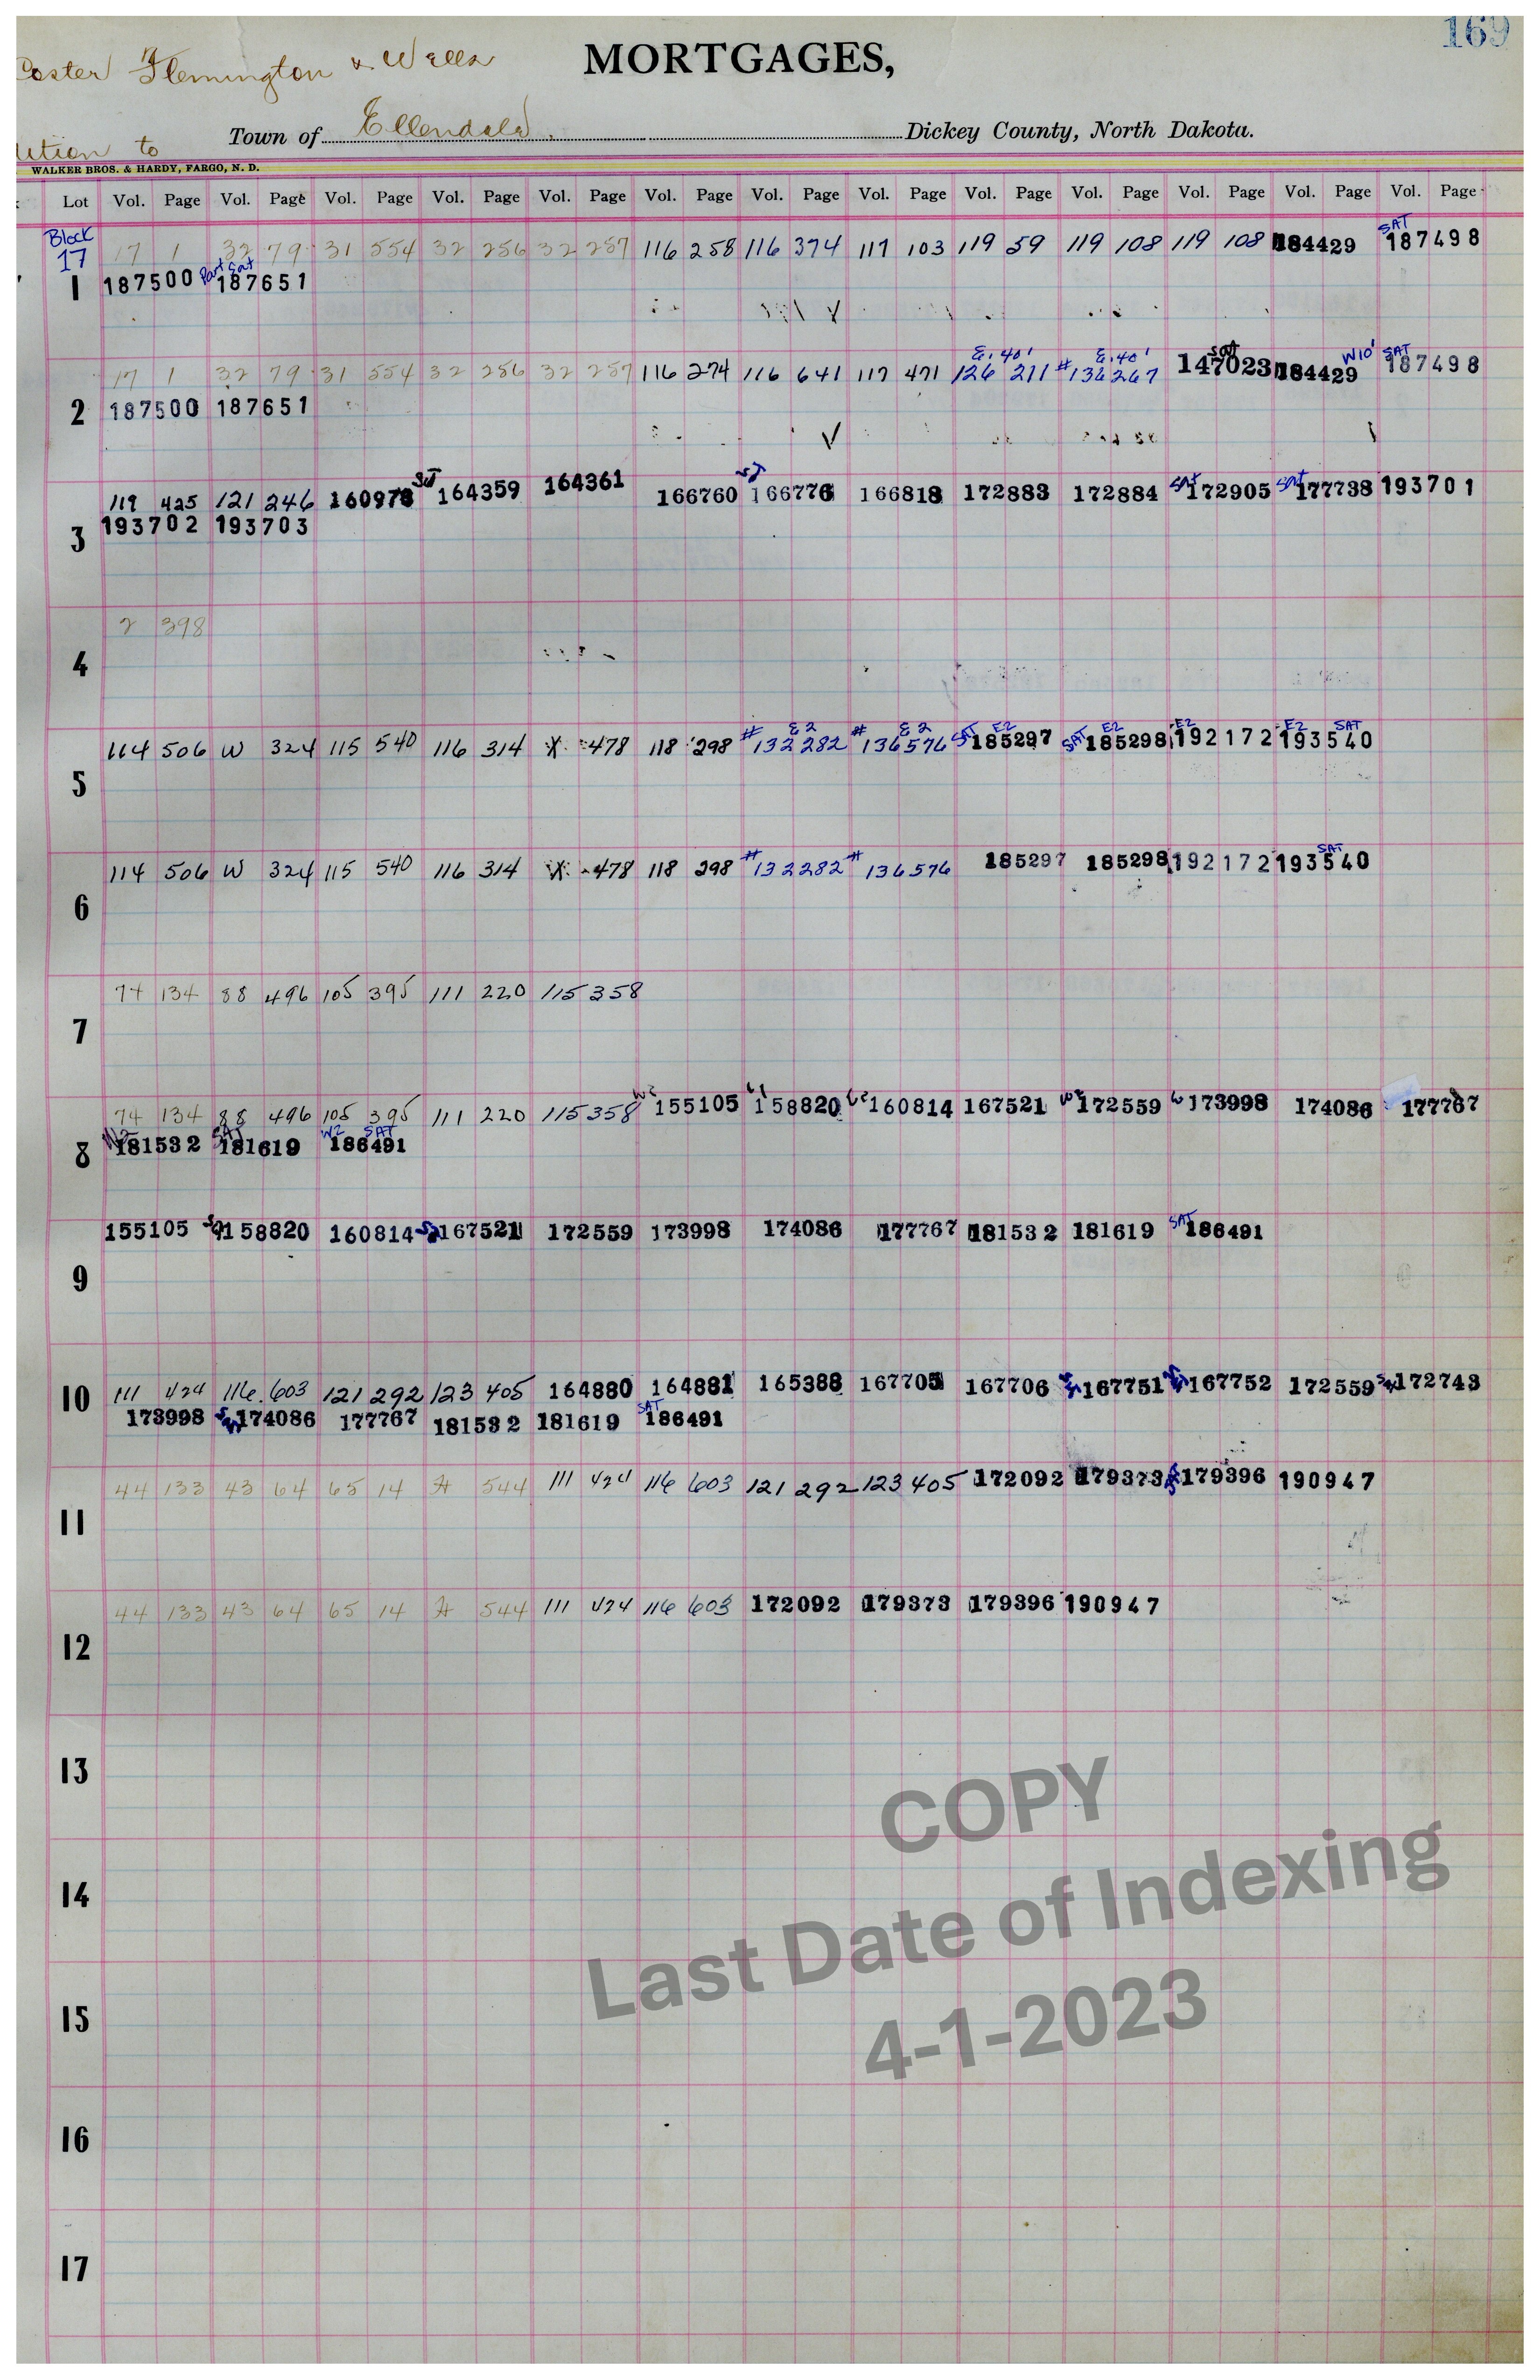 169
Coster Flemington & Wells
MORTGAGES,
Town of Ellendale, Dickey County, North Dakota.
dition to
WALKER BROS. & HARDY, FARGO, N. D.
Lot Vol. Page Vol. Page Vol. Page Vol. Page Vol. Page Vol. Page Vol. Page Vol. Page Vol. Page Vol. Page Vol. Page Vol. Page Vol. Page
Block 17
17 1 32 79 31 554 32 256 32 257 116 258 116 374 117 103 119 59 119 108 119 108 184429 SAT 187498
1 187500 Part Sat 187651
17 1 32 79 31 554 32 256 32 257 116 274 116 641 117 471 E. 40' 126 211 E. 40' #136267 Sat 147023 184429 W10' SAT 187498
2 187500 187651
119 425 121 246 160978 Sat 164359 164361 166760 166776 166818 172883 172884 SAT 172905 SAT 177738 193701
3 193702 193703
2 398
4
114 506 W 324 115 540 116 314 X 478 118 298 #132282 E2 #136576 E2 SAT 185297 E2 SAT 185298 E2 192172 E2 193540 E2 SAT
5
114 506 W 324 115 540 116 314 X 478 118 298 #132282 #136576 185297 185298 192172 193540 SAT
6
74 134 88 496 105 395 111 220 115 358
7
74 134 88 496 105 395 111 220 115 358 W2 155105 158820 160814 167521 W2 172559 173998 174086 177767
8 W2 181532 SAT 181619 W2 SAT 186491
155105 158820 160814 167521 172559 173998 174086 177767 181532 181619 SAT 186491
9
10 111 424 116 603 121 292 123 405 164880 164881 165388 167705 167706 167751 167752 172559 172743
173998 174086 177767 181532 181619 SAT 186491
44 133 43 64 65 14 A 544 111 424 116 603 121 292 123 405 172092 179373 179396 190947
11
44 133 43 64 65 14 A 544 111 424 116 603 172092 179373 179396 190947
12
13
14
15
16
17
COPY
Last Date of Indexing
4-1-2023